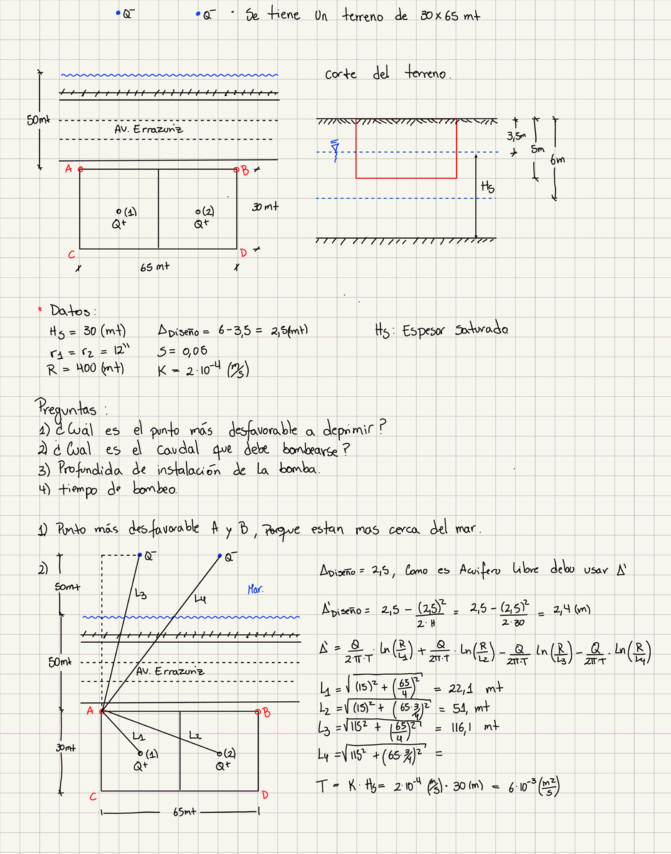 Q⁻ Q⁻ · Se tiene un terreno de 30x65 mt
corte del terreno.
50mt
Av. Errazuriz
A B
(1) (2)
Q+ Q+
30 mt
C D
65 mt
3,5m
5m
6m
Hs
• Datos:
Hs = 30 (mt) ΔDiseño = 6-3,5 = 2,5(mt) Hs: Espesor Saturado
r1 = r2 = 12" S = 0,05
R = 400 (mt) K = 2·10⁻⁴ (m/s)
Preguntas:
1) ¿Cuál es el punto más desfavorable a deprimir?
2) ¿Cual es el caudal que debe bombearse?
3) Profundida de instalación de la bomba.
4) tiempo de bombeo.
1) Punto más desfavorable A y B, Porque estan mas cerca del mar.
2)
Q⁻ Q⁻
50mt
L3 L4
Mar.
50mt
Av. Errazuriz
A B
L1 L2
(1) (2)
Q+ Q+
30mt
C D
65mt
ΔDiseño = 2,5, Como es Acuifero libre debo usar Δ'
Δ'Diseño = 2,5 - (2,5)²/2·H = 2,5 - (2,5)²/2·30 = 2,4 (m)
Δ' = Q/2π·T · ln(R/L1) + Q/2π·T · ln(R/L2) - Q/2π·T ln(R/L3) - Q/2π·T · ln(R/L4)
L1 = √((15)² + (65/4)²) = 22,1 mt
L2 = √((15)² + (65·3/4)²) = 51, mt
L3 = √(115² + (65/4)²) = 116,1 mt
L4 = √(115² + (65·3/4)²) =
T = K·Hs = 2·10⁻⁴ (m/s) · 30 (m) = 6·10⁻³ (m²/s)